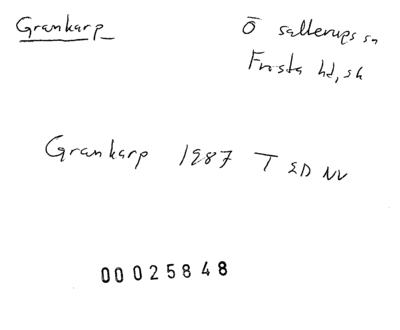 Grankarp
Ö Sallerups sn
Frosta hd, sk
Grankarp 1987 T ED NV
00025848